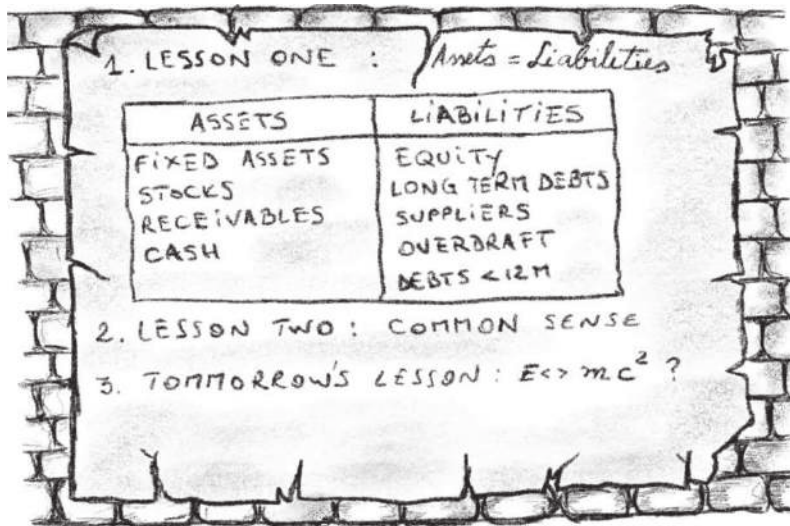 1. LESSON ONE : Assets = Liabilities
ASSETS LIABILITIES
FIXED ASSETS EQUITY
STOCKS LONG TERM DEBTS
RECEIVABLES SUPPLIERS
CASH OVERDRAFT
DEBTS < 12M
2. LESSON TWO : COMMON SENSE
3. TOMMORROW'S LESSON : E<> mc² ?